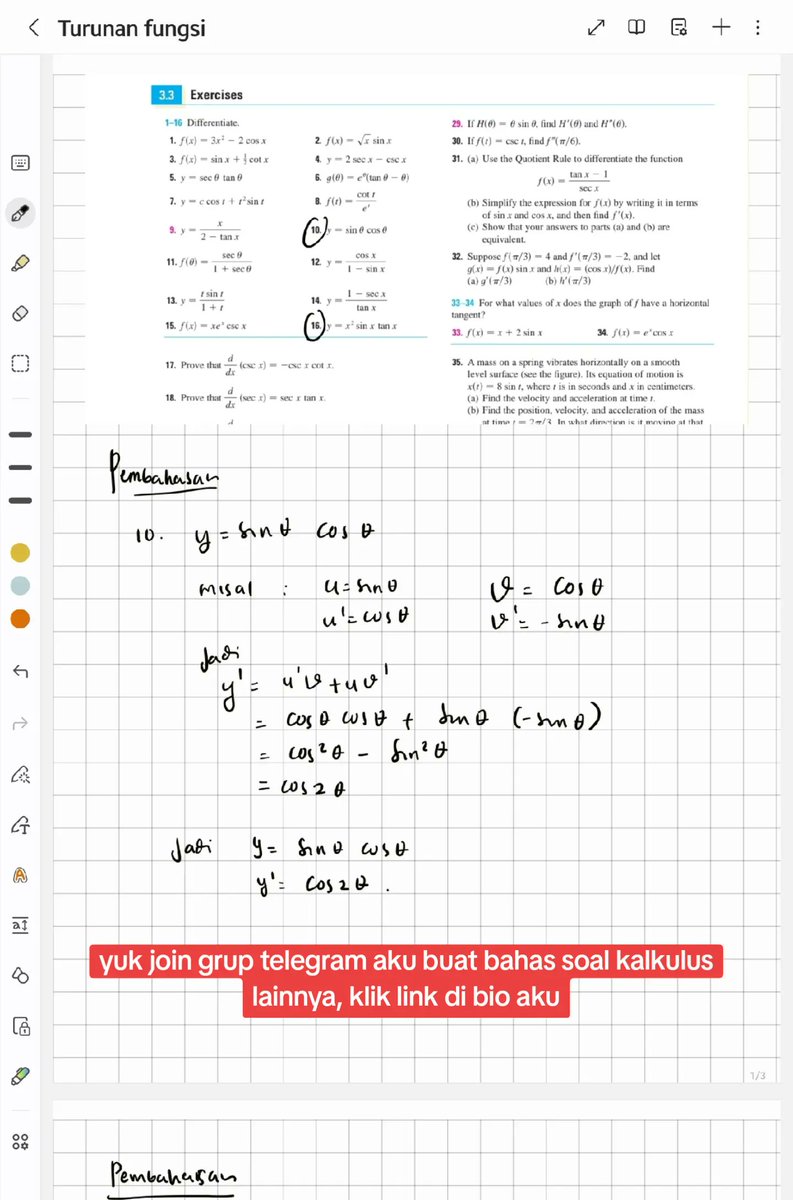 Turunan fungsi
3.3 Exercises
1–16 Differentiate.
1. f(x) = 3x² − 2 cos x
2. f(x) = √x sin x
3. f(x) = sin x + ½ cot x
4. y = 2 sec x − csc x
5. y = sec θ tan θ
6. g(θ) = e^θ(tan θ − θ)
7. y = c cos t + t² sin t
8. f(t) = cot t / e^t
9. y = x / (2 − tan x)
10. y = sin θ cos θ
11. f(θ) = sec θ / (1 + sec θ)
12. y = cos x / (1 − sin x)
13. y = t sin t / (1 + t)
14. y = (1 − sec x) / tan x
15. f(x) = xe^x csc x
16. y = x² sin x tan x
17. Prove that d/dx (csc x) = −csc x cot x.
18. Prove that d/dx (sec x) = sec x tan x.
29. If H(θ) = θ sin θ, find H′(θ) and H″(θ).
30. If f(t) = csc t, find f″(π/6).
31. (a) Use the Quotient Rule to differentiate the function
f(x) = (tan x − 1) / sec x
(b) Simplify the expression for f(x) by writing it in terms
of sin x and cos x, and then find f′(x).
(c) Show that your answers to parts (a) and (b) are
equivalent.
32. Suppose f(π/3) = 4 and f′(π/3) = −2, and let
g(x) = f(x) sin x and h(x) = (cos x)/f(x). Find
(a) g′(π/3) (b) h′(π/3)
33–34 For what values of x does the graph of f have a horizontal
tangent?
33. f(x) = x + 2 sin x
34. f(x) = e^x cos x
35. A mass on a spring vibrates horizontally on a smooth
level surface (see the figure). Its equation of motion is
x(t) = 8 sin t, where t is in seconds and x in centimeters.
(a) Find the velocity and acceleration at time t.
(b) Find the position, velocity, and acceleration of the mass
at time t = 2π/3. In what direction is it moving at that
Pembahasan
10. y = sin θ cos θ
misal : u = sin θ v = cos θ
u' = cos θ v' = - sin θ
Jadi
y' = u'v + uv'
= cos θ cos θ + sin θ (-sin θ)
= cos² θ - sin² θ
= cos 2 θ
Jadi y = sin θ cos θ
y' = cos 2 θ .
yuk join grup telegram aku buat bahas soal kalkulus
lainnya, klik link di bio aku
1/3
Pembahasan